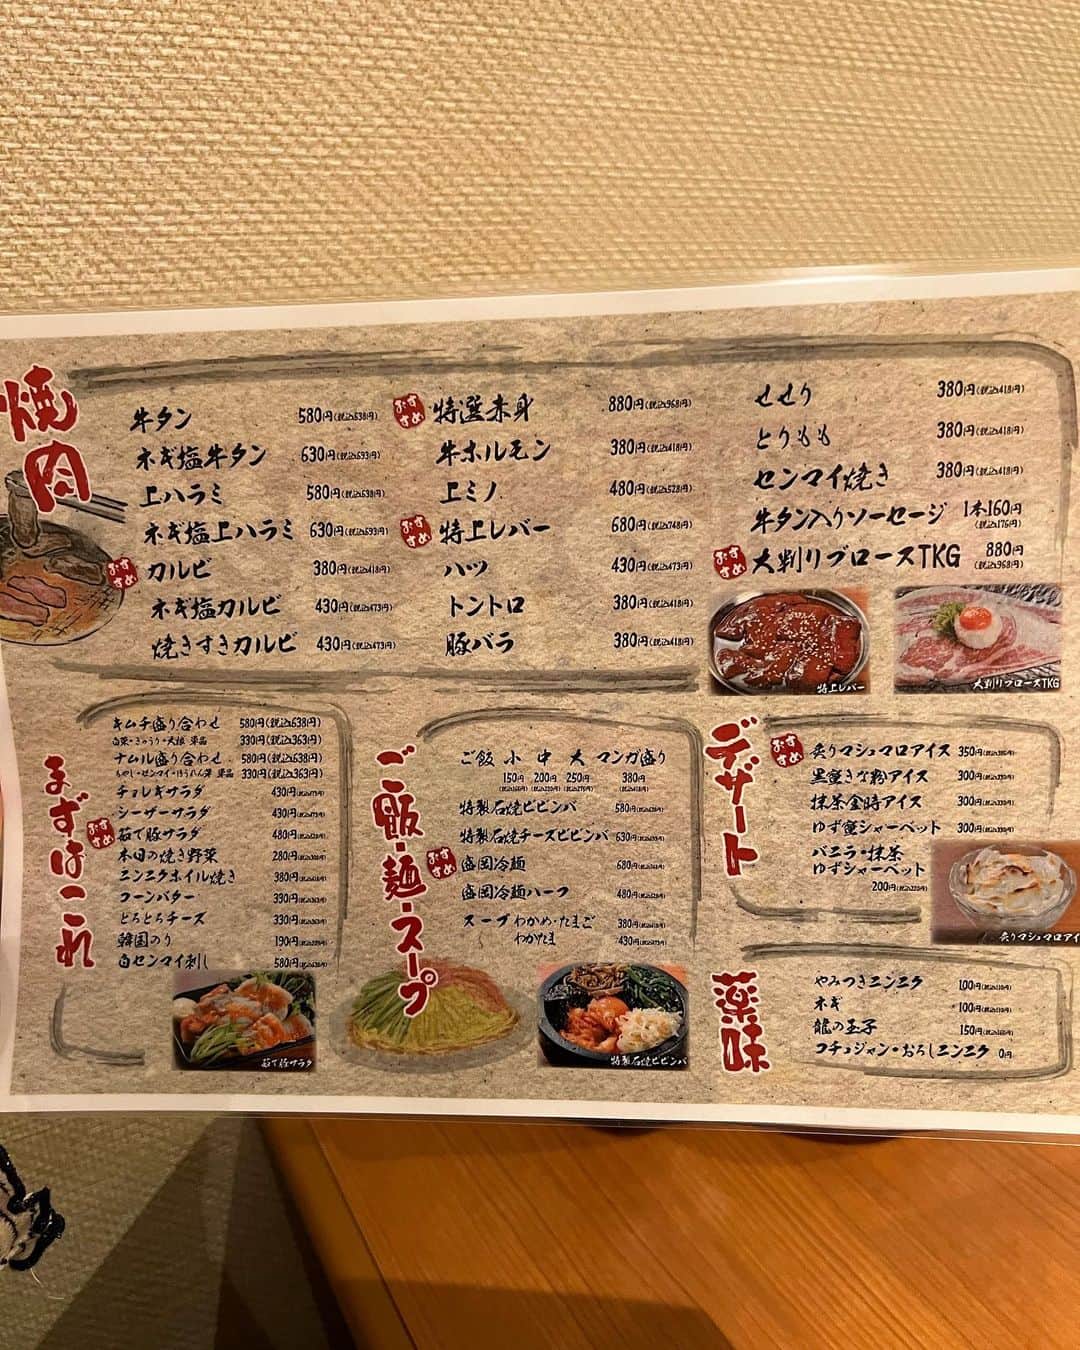 焼肉
牛タン 580円(税込638円)
ネギ塩牛タン 630円(税込693円)
上ハラミ 580円(税込638円)
ネギ塩上ハラミ 630円(税込693円)
おすすめ カルビ 380円(税込418円)
ネギ塩カルビ 430円(税込473円)
焼きすきカルビ 430円(税込473円)
おすすめ 特選赤身 880円(税込968円)
牛ホルモン 380円(税込418円)
上ミノ 480円(税込528円)
おすすめ 特上レバー 680円(税込748円)
ハツ 430円(税込473円)
トントロ 380円(税込418円)
豚バラ 380円(税込418円)
せせり 380円(税込418円)
とりもも 380円(税込418円)
センマイ焼き 380円(税込418円)
牛タン入りソーセージ 1本160円
(税込176円)
おすすめ 大判リブロースTKG 880円
(税込968円)
特上レバー
大判リブロースTKG
まずはこれ
キムチ盛り合わせ 580円(税込638円)
白菜・きゅうり・大根 単品 330円(税込363円)
ナムル盛り合わせ 580円(税込638円)
もやし・ゼンマイ・ほうれん草 単品 330円(税込363円)
チョレギサラダ 430円(税込473円)
シーザーサラダ 430円(税込473円)
おすすめ 茹で豚サラダ 480円(税込528円)
本日の焼き野菜 280円(税込308円)
ニンニクホイル焼き 380円(税込418円)
コーンバター 330円(税込363円)
とろとろチーズ 330円(税込363円)
韓国のり 190円(税込209円)
白センマイ刺し 580円(税込638円)
茹で豚サラダ
ご飯・麺・スープ
ご飯 小 中 大 マンガ盛り
150円 200円 250円 380円
(税込165円) (税込220円) (税込275円) (税込418円)
特製石焼ビビンバ 580円(税込638円)
特製石焼チーズビビンバ 630円(税込693円)
おすすめ 盛岡冷麺 680円(税込748円)
盛岡冷麺ハーフ 480円(税込528円)
スープ わかめ・たまご 380円(税込418円)
〜 わかたま 430円(税込473円)
特製石焼ビビンバ
デザート
おすすめ 炙りマシュマロアイス 350円(税込385円)
黒蜜きな粉アイス 300円(税込330円)
抹茶金時アイス 300円(税込330円)
ゆず蜜シャーベット 300円(税込330円)
バニラ・抹茶
ゆずシャーベット
200円(税込220円)
炙りマシュマロアイ
薬味
やみつきニンニク 100円(税込110円)
ネギ 100円(税込110円)
龍の玉子 150円(税込165円)
コチュジャン・おろしニンニク 0円